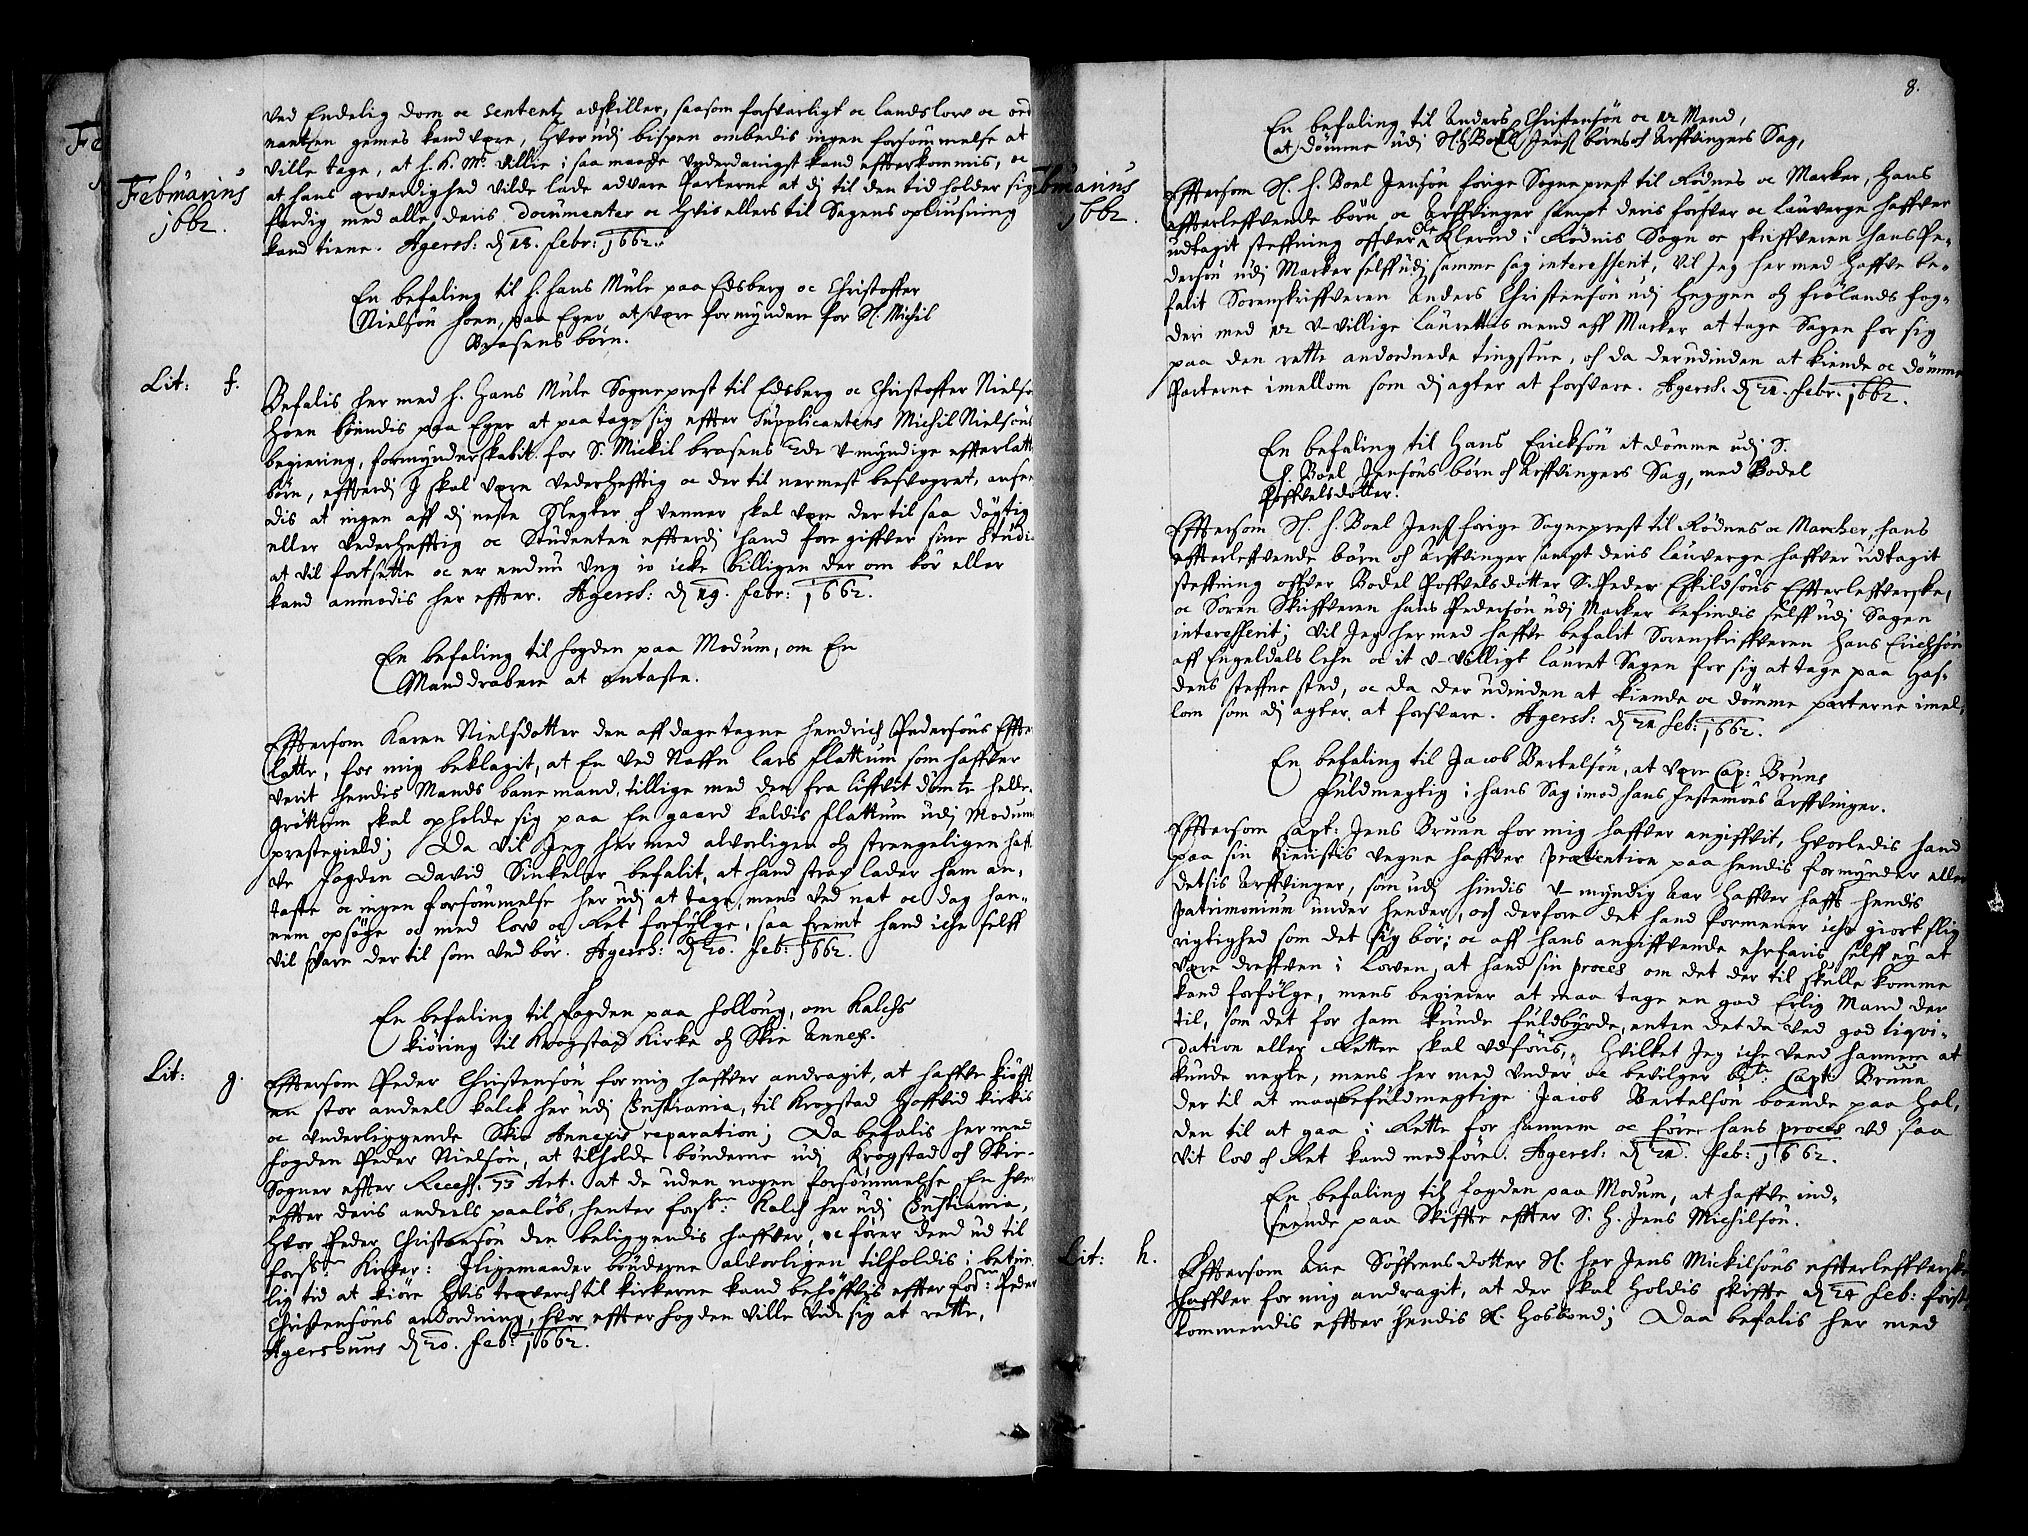 Februarius
1662.
ved Endelig dom oc Sententz adskiller, saasom forsvarligt oc landslow oc ord
nantzen gemes kand være, Hvorudj bispen ombedis ingen forsømmelse at
ville tage, at h. K. Ms. Villie i saa maade vnderdanigst kand effterkommis, oc
at hans ærverdighed vilde lade advare Parterne at dj til den tid holder sig
færdig med alle deris Documenter oc hvis ellers til Sagens opliusning
kand tiene. Agersh: d 18. febr: 1662.
En befaling til h. Hans Mule paa Edsberg oc Christoffer
Nielsøn Hoen, paa Eger at være formyndere for Sl. Michil
Brosens børn.
Lit: f.
Befalis her med h. Hans Mule Sogneprest til Edsberg oc Christoffer Nielsøn
Hoen boendis paa Eger at paa tage sig effter Supplicantens Michil Nielsøns
begiering, formynderskabit for S. Mickil brosens v-myndige effterlatte
børn, effterdj I skal være vederhefftig oc der til nermest besvogret, anse-
dis at ingen aff dj neste Slegter oc venner skal være der til saa døgtig
eller vederhefftig oc Studenten effterdj hand foregiffver sine Studi
at vil fortsette oc er endnu vng io icke billigen der om bør eller
kand anmodis her effter. Agersh: d 19. febr: 1662.
En befaling til fogden paa Modum, om En
Manddrabere at antaste.
Effterson Karen Nielsdotter den aff dage tagne Hendrich Pedersøns Effter
latte, for mig beklagit, at En ved Naffn Lars flattum som haffver
verit hendis Mands banemand, tillige med den fra liffvit dømte helle
Grøttum skal opholde sig paa En gaard kaldis flattum udj Modums
prestegield; Da vil Jeg her med alvorligen och strengeligen haff
ve fogden David Sinkeler befalit, at hand strax lader ham an-
taste oc ingen forsømmelse her udj at tage, mens ved nat oc dag han-
nem opsøge oc med low oc Ret forfølge, saa fremt hand iche selff
vil svare der til som ved bør. Agersh: d 20. feb: 1662.
En befaling til fogden paa follong, om Kalchs
kiøring til Krogstad Kirke och Skie Annex.
Lit: g.
Effterson Peder Christensøn for mig haffver andragit, at haffve kiøfft
en stor andeel kalck her udj Christiania, til Krogstad Hoffvid kirkis
oc vnderliggende Skie Annexis reparation; Da befalis her med
fogden Peder Nielsøn, at tilholde bønderne udj Krogstad och Skie-
Sogner effter Recess. 53 Art: at de uden nogen forsømmelse En hver
effter deris andeels paaløb, henter forsk: Kalch her udj Christiania,
hvor Peder Christensøn den beliggendis haffver, oc fører dend ud til
forsk: Kirker: Iligemaader bønderne alvorligen tilholdis i betime
lig tid at kiøre hvis træverch til kirkerne kand behøffvis effter for: Peder
Christensøns anordning, hvor effter fogden ville vide sig at rette,
Agershuus d 20. feb: 1662.
8.
Februarius
1662.
En befaling til Anders Christensøn oc 12 Mend,
at dømme udj Sl. h. Boel Jens: børns och Arffvingers Sag,
Effterson Sl. h. Boel Jensøn forige Sogneprest til Rødnes oc Marker, hans
effterleffvende børn oc Arffvinger sampt deris forsvar oc lauverge haffver
udtagit steffning offver Ole Klerud i Rødnis Sogn oc skriffveren Hans Pe-
dersøn udj Marker selff udj samme sag interesserit, Vil Jeg her med haffve be-
falit Sorenskriffveren Anders Christensøn udj Heggen och frølands fog-
deri med 12 v-villige Laurettis mend aff Marker at tage Sagen for sig
paa den rette anordnede tingstue, och da der udinden at kiende oc dømme
Parterne imellom som dj agter at forsvare. Agersh: d 21. febr: 1662.
En befaling til Hans Ericksøn at dømme udj S.
h. Boel Jensøns børn och Arffvingers Sag, med Bodel
Poffvelsdotter.
Effterson Sl. h. Boel Jens: forige Sogneprest til Rødnes oc Marcher, hans
effterleffvende børn och Arffvinger sampt deris lauverge haffver udtagit
steffning offver Bodel Poffvelsdotter S. Peder Eskildsøns Effterleffverske,
oc Soren Skriffveren Hans Pedersøn udj Marker befindis selff udj Sagen
interesserit; Vil Jeg her med haffve befalit Sorenskriffveren Hans Erichsøn
aff Engeldals lehn oc it v-villigt lauret Sagen for sig at tage paa Haf-
dens steffne sted, oc da der udinden at kiende oc dømme parterne imel-
lom som dj agter at forsvare. Agersh: d 21 feb: 1662.
En befaling til Jacob Bertelsøn, at være Cap: Bruns
fuldmegtig i hans Sag imod hans festemøes Arffvinger.
Effterson Capt: Jens Bruun for mig haffver angiffvit, hvorledis hand
paa sin Kieristis vegne haffver prætention paa hendis formynder eller
detsis Arffvinger, som udj hindis v-myndig Aar haffver hafft hendis
patrimonium under hender, och derfore det hand formener iche giort slig
rigtighed som det sig bør; oc aff hans angiffvende ehrfaris selff ey at
være dreffven i Lowen, at hand sin proces om det der til skulle komme
kand forfølge, mens begierer at maa tage en god Erlig Mand der
til, som det for ham kunde fuldbyrde, enten det da ved god liqvi-
dation eller Retten skal vdføris, hvilket Jeg iche vend hannem at
kunde negte, mens her med vnder oc bevilger bete: Capt: Bruun
der til at maa befuldmegtige Jacob Bertelsøn boende paa Hol,
den til at gaa i Rette for hannem oc fører hans proces vd saa
vit lov och Ret kand medføre. Agersh: d 21. feb: 1662.
En befaling til fogden paa Modum, at haffve ind-
seende paa Skiffte effter S. H. Jens Michilsøn.
Lit: h.
Effterson Ane Søffrensdotter Sl. her Jens Mickilsøns effterleffverske
haffver for mig andragit, at der skal holdis skiffte d 24 feb: først
kommendis effter hendis Sl. Hosbond; Daa befalis her med